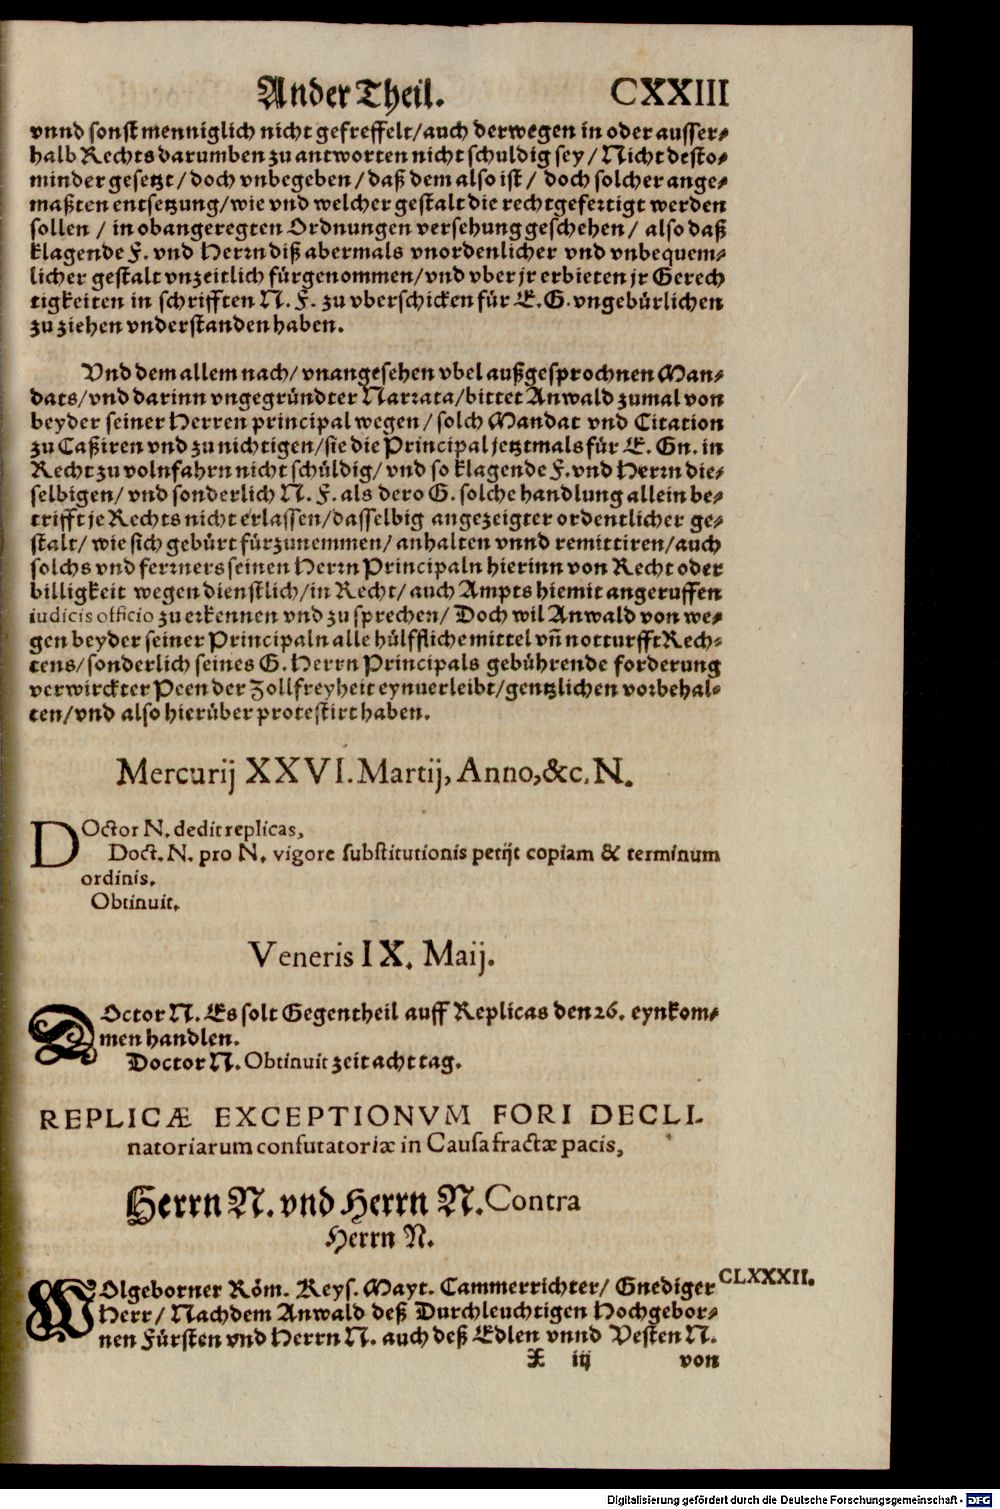 Ander Theil. CXXIII
vnnd sonst menniglich nicht gefreffelt/auch derwegen in oder ausser-
halb Rechts darumben zu antworten nicht schuldig sey/Nicht desto-
minder gesetzt/doch vnbegeben/daß dem also ist/ doch solcher ange-
maßten entsetzung/wie vnd welcher gestalt die rechtgefertigt werden
sollen / in obangeregten Ordnungen versehung geschehen/ also daß
klagende F. vnd Herrn diß abermals vnordenlicher vnd vnbequem-
licher gestalt vnzeitlich fürgenommen/vnd vber jr erbieten jr Gerech
tigkeiten in schrifften N. F. zu vberschicken für E. G. vngebürlichen
zu ziehen vnderstanden haben.
Vnd dem allem nach/ vnangesehen vbel außgesprochnen Man-
dats/vnd darinn vngegründter Narrata/bittet Anwald zumal von
beyder seiner Herren principal wegen/solch Mandat vnd Citation
zu Caßiren vnd zu nichtigen/sie die Principal jetztmals für E. Gn. in
Recht zu volnfahrn nicht schüldig/vnd so klagende F. vnd Herrn die-
selbigen/ vnd sonderlich N. F. als dero G. solche handlung allein be-
trifft je Rechts nicht erlassen/dasselbig angezeigter ordentlicher ge-
stalt/ wie sich gebürt fürzunemmen/anhalten vnnd remittiren/auch
solchs vnd ferrners seinen Herrn Principaln hierinn von Recht oder
billigkeit wegen dienstlich/in Recht/auch Ampts hiemit angeruffen
iudicis officio zu erkennen vnd zu sprechen/ Doch wil Anwald von we-
gen beyder seiner Principaln alle hülffliche mittel vñ notturfft Rech-
tens/sonderlich seines G. Herrn Principals gebührende forderung
verwirckter Peen der Zollfreyheit eynuerleibt/gentzlichen vorbehal-
ten/vnd also hierüber protestirt haben.
Mercurij XXVI. Martij, Anno,&c. N.
DOctor N. dedit replicas,
Doct. N. pro N. vigore substitutionis petijt copiam & terminum
ordinis.
Obtinuit.
Veneris IX. Maij.
DOctor N. Es solt Gegentheil auff Replicas den 26. eynkom-
men handlen.
Doctor N. Obtinuit zeit acht tag.
REPLICÆ EXCEPTIONVM FORI DECLI-
natoriarum confutatoriæ in Causa fractæ pacis,
Herrn N. vnd Herrn N. Contra
Herrn N.
WOlgeborner Röm. Keys. Mayt. Cammerrichter/ Gnediger CLXXXII.
Herr/ Nachdem Anwald deß Durchleuchtigen Hochgebor-
nen Fürsten vnd Herrn N. auch deß Edlen vnnd Vesten N.
X iij von
Digitalisierung gefördert durch die Deutsche Forschungsgemeinschaft - DFG